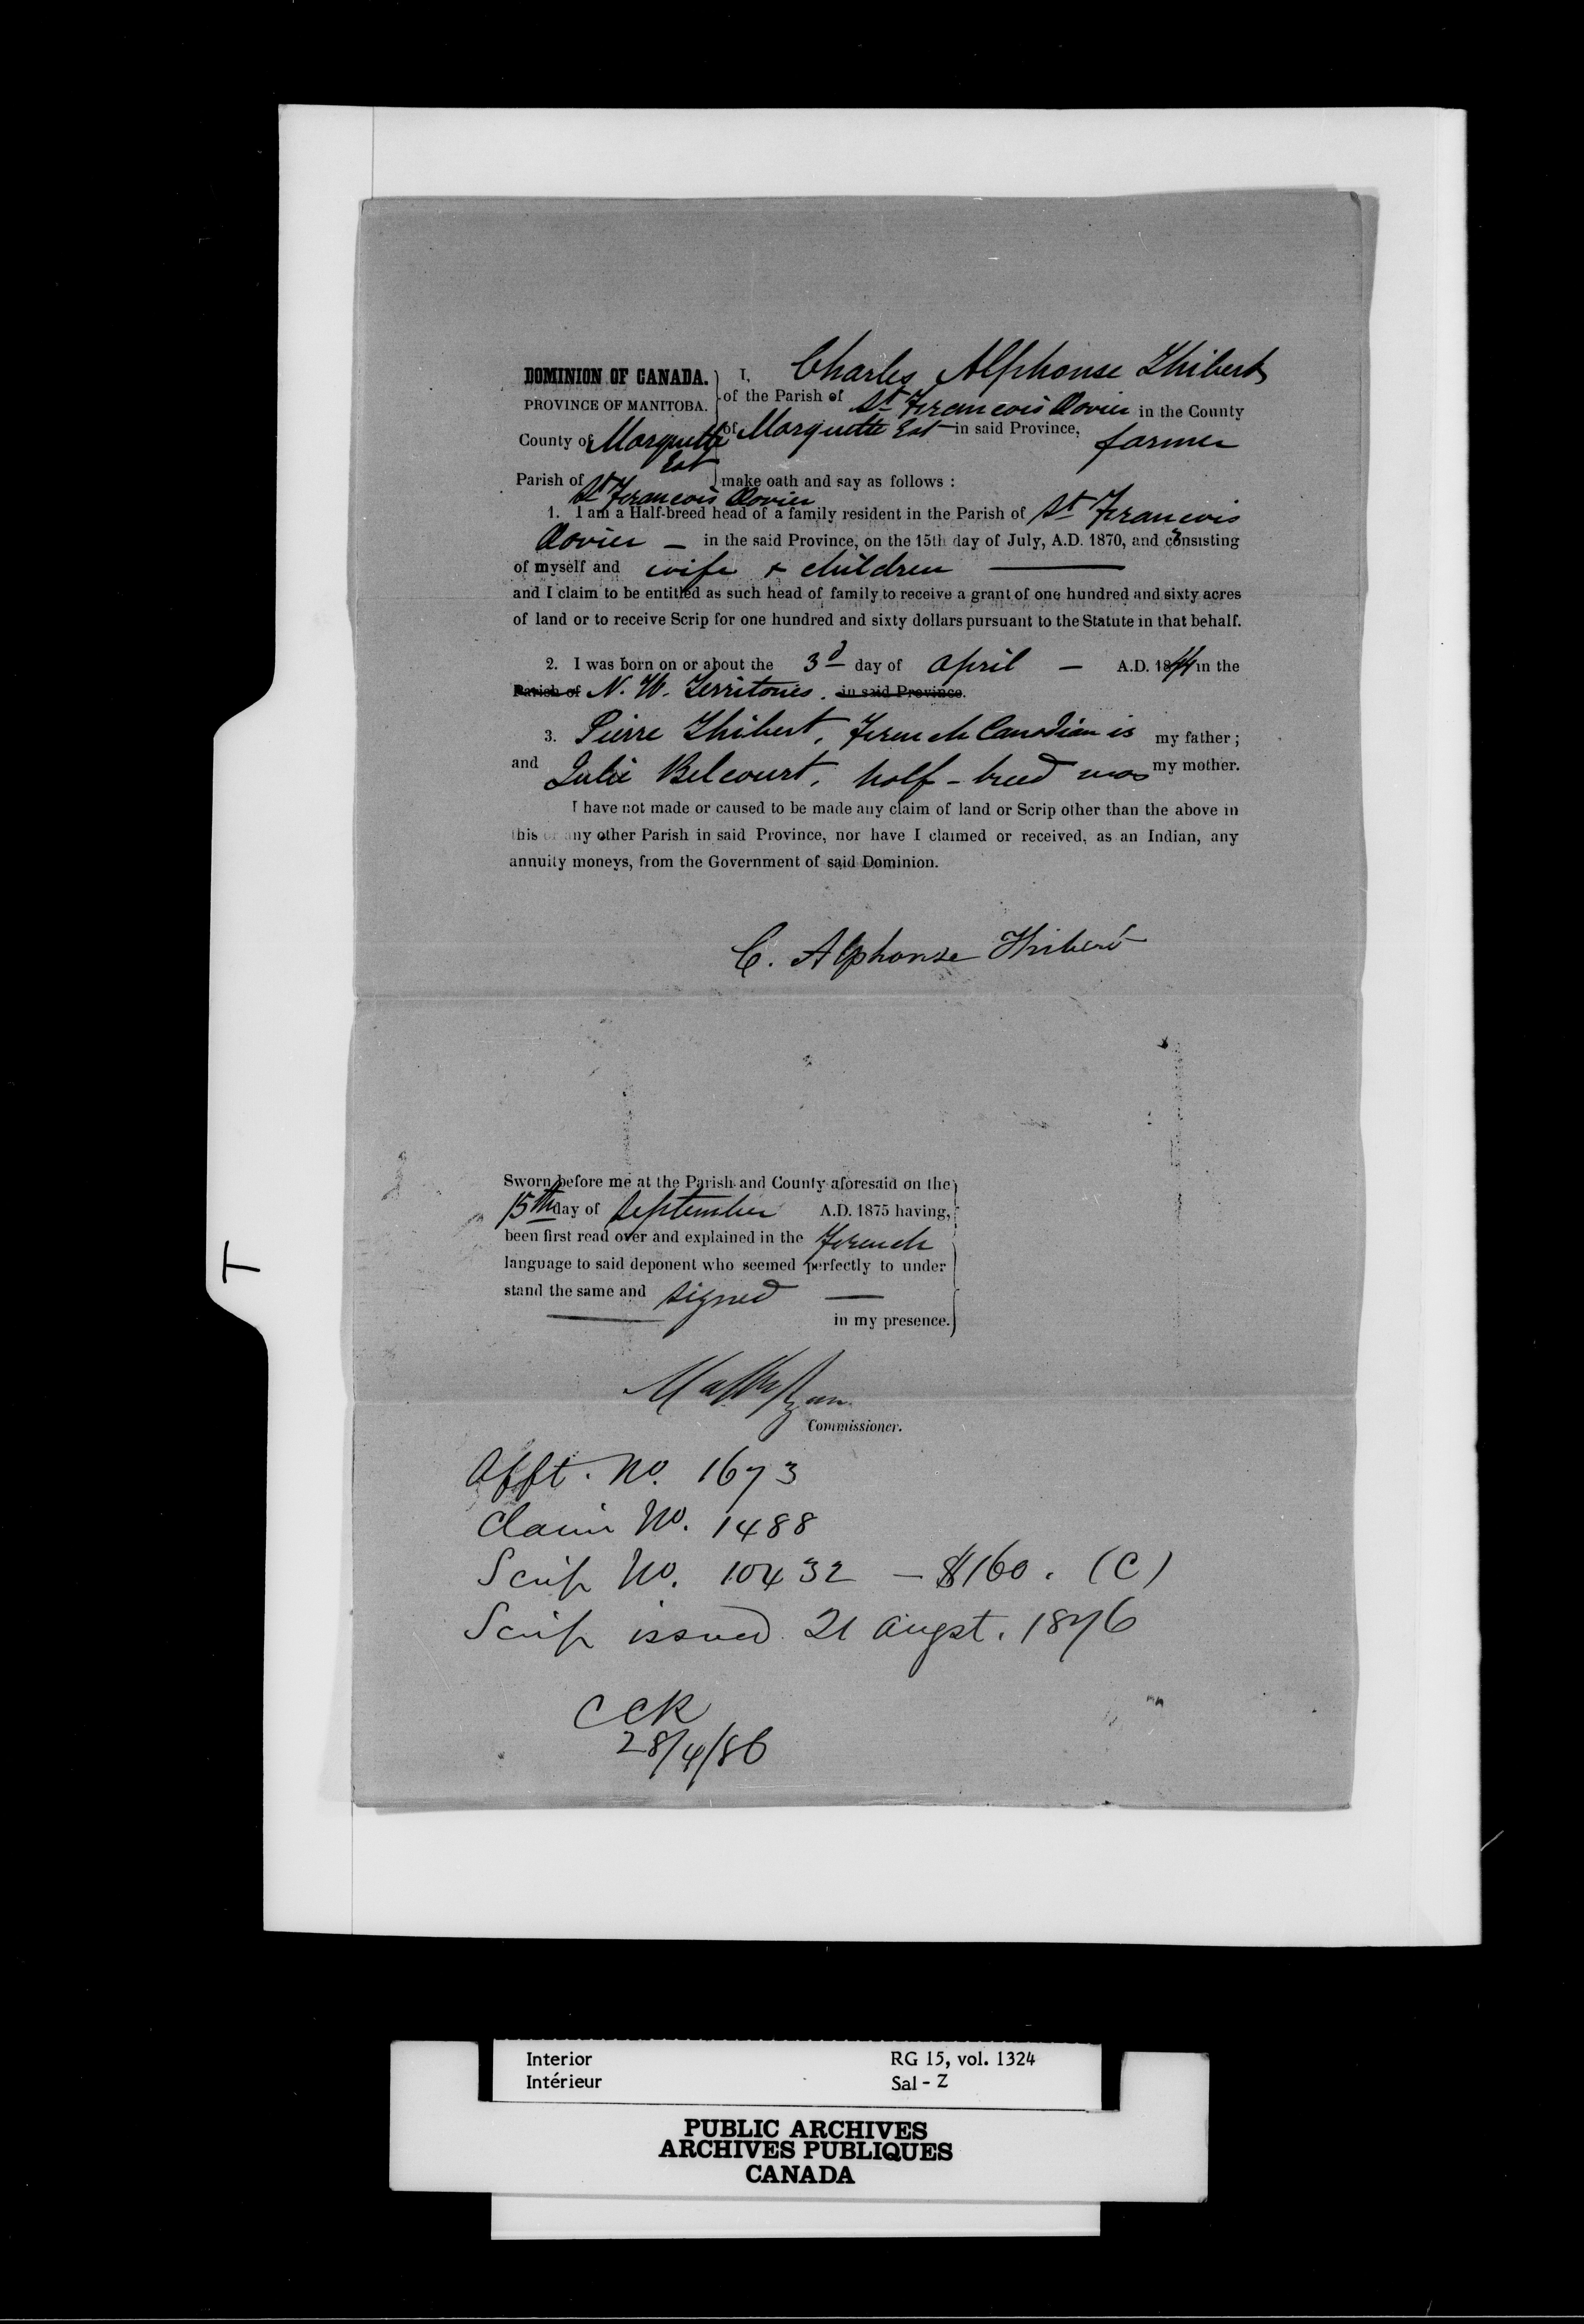 DOMINION OF CANADA. I, Charles Alphonse Thibert
PROVINCE OF MANITOBA. of the Parish of St François Xavier in the County
County of Marquette East of Marquette East in said Province, farmer
Parish of St François Xavier make oath and say as follows :
1. I am a Half-breed head of a family resident in the Parish of St François
Xavier — in the said Province, on the 15th day of July, A.D. 1870, and consisting
of myself and wife & children —
and I claim to be entitled as such head of family to receive a grant of one hundred and sixty acres
of land or to receive Scrip for one hundred and sixty dollars pursuant to the Statute in that behalf.
2. I was born on or about the 3d day of April — A.D. 1844 in the
Parish of N. W. Territories. in said Province.
3. Pierre Thibert, French Canadian is my father ;
and Julie Belcourt, half-breed was my mother.
I have not made or caused to be made any claim of land or Scrip other than the above in
this or any other Parish in said Province, nor have I claimed or received, as an Indian, any
annuity moneys, from the Government of said Dominion.
C. Alphonse Thibert
Sworn before me at the Parish and County aforesaid on the
15th day of September A.D. 1875 having,
been first read over and explained in the French
language to said deponent who seemed perfectly to under
stand the same and signed —
in my presence.
Matthw Ryan
Commissioner.
Afft. No. 1673
Claim No. 1488
Scrip No. 10432 — $160. (C)
Scrip issued 21 Augst. 1876
CCR
28/4/86
T
Interior RG 15, vol. 1324
Intérieur Sal - Z
PUBLIC ARCHIVES
ARCHIVES PUBLIQUES
CANADA